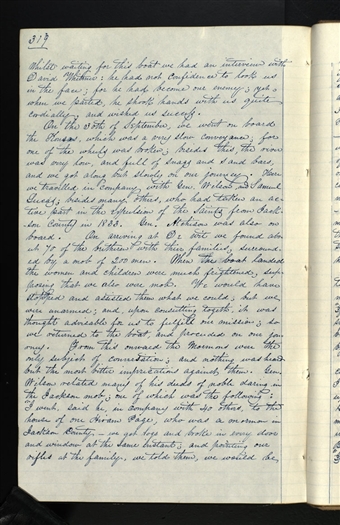 319
Whilst waiting for this boat we had an interview with
David Whitmer: he had not confidence to look us
in the face; for he had become our enemy; yet,
when we parted, he shook hands with us quite
cordially, and wished us success.
On the 30th of September, we went on board
the Kansas, which was a very slow conveyance; for
one of the wheels was broken; besides this the river
was very low, and full of snags and sand bars,
and we got along but slowly on our journey. Here
we travelled in company, with Gen. Wilson, and Samuel
Lucas, besides many others, who had taken an ac-
tive part in the expulsion of the Saints from Jack-
son County in 1833. Gen. Atchison was also on
board. On arriving at De Witt we found abo
ut 70 of the brethren with their families, surround-
ed by a mob of 200 men. When the boat landed
the women and children were much frightened, sup-
posing that we also were mob. We would have
stopped and assisted them what we could; but we
were unarmed; and, upon consulting together, it was
thought advisable for us to fulfill our mission; so
we returned to the boat, and proceeded on our jour
ney. From this onwards the Mormons were the
only subject of conversation; and nothing was heard
but the most bitter imprecations against them. Gen.
Wilson related many of his deeds of noble daring in
the Jackson mob; one of which was the following:
I went, said he, in company with 40 others, to the
house of one Hiram Page, who was a mormon in
Jackson County,—we got logs and broke in every door
and window at the same instant; and pointing our
rifles at the family, we told them, we would be,